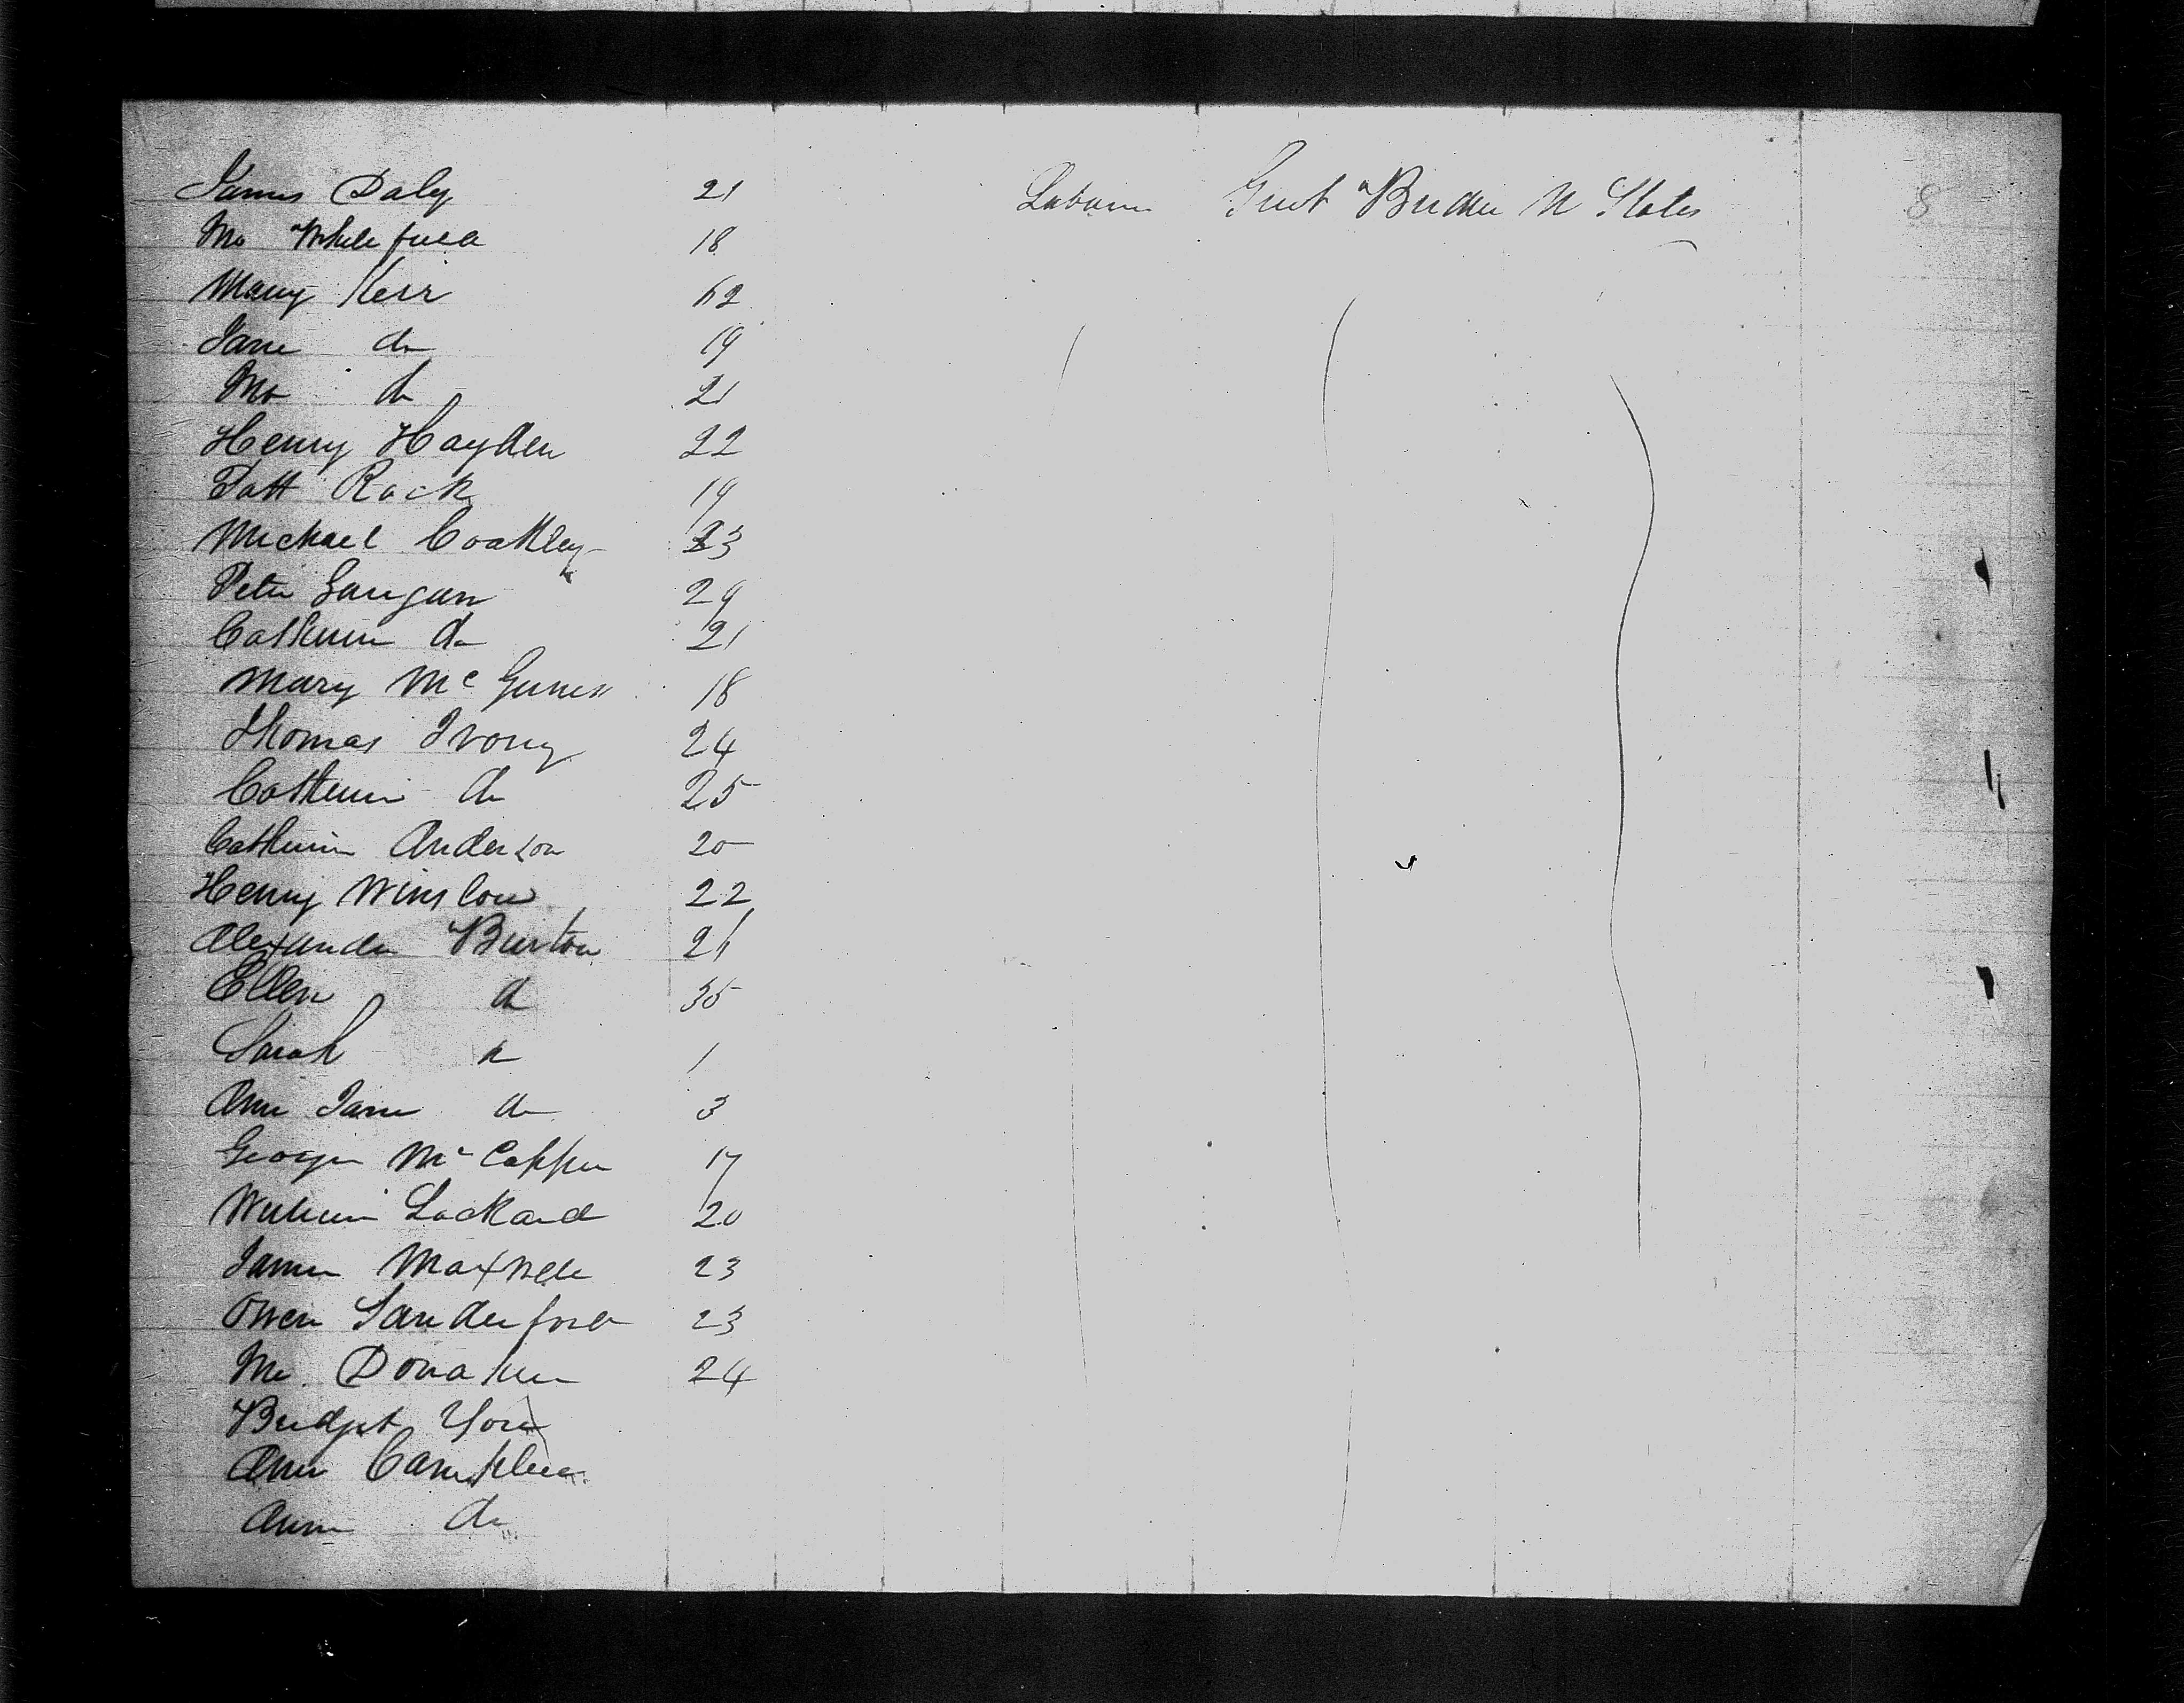 James Daly 21 Labourer Great Britain U States 8
Wm Whitefield 18
Mary Kerr 62
Jane do 19
Wm do 21
Henry Hayden 22
Patt Rock 19
Michael Coakley 23
Peter Gaugan 29
Catherine do 21
Mary Mc Guness 18
Thomas Ivory 24
Catherine do 25
Catherine Anderson 20
Henry Winslow 22
Alexander Burton 21
Ellen do 35
Sarah do 1
Ann Jane do 3
George 17
William Lockard 20
James Maxwell 23
Owen Sanderford 23
Donahue 24
Bridget
Ann Campbell
Ann do